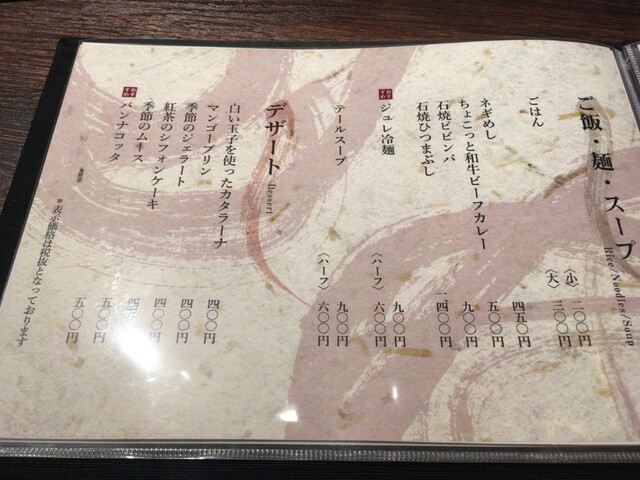 ご飯・麺・スープ Rice/Noodles/Soup
ごはん 〈小〉二〇〇円
〈大〉三〇〇円
ネギめし 四五〇円
ちょこっと和牛ビーフカレー 五〇〇円
石焼ビビンバ 九〇〇円
石焼ひつまぶし 一四〇〇円
おすすめ ジュレ冷麺 九〇〇円
〈ハーフ〉六〇〇円
テールスープ 九〇〇円
〈ハーフ〉六〇〇円
デザート Dessert
白い玉子を使ったカタラーナ 四〇〇円
マンゴープリン 四〇〇円
季節のジェラート 四〇〇円
紅茶のシフォンケーキ
季節のムース 五〇〇円
おすすめ パンナコッタ 五〇〇円
*表示価格は税抜となっております